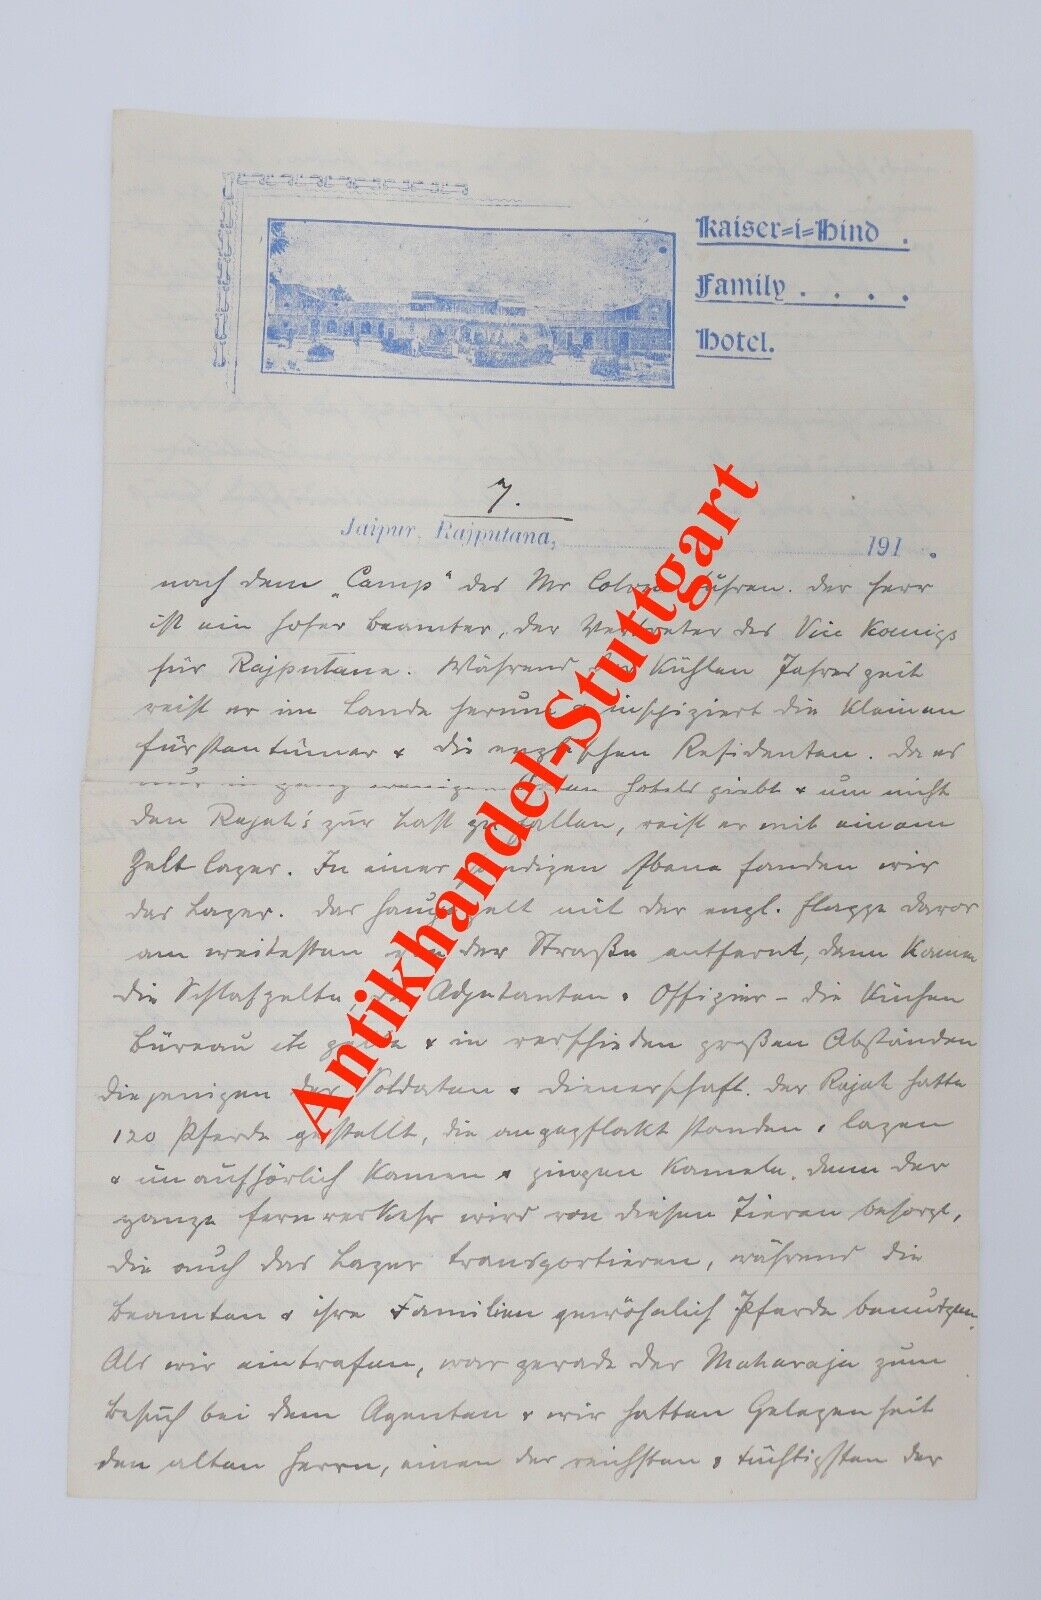 Kaiser=i=Hind .
Family . . . .
Hotel.
7.
Jaipur, Rajputana, 191 .
nach dem „Camp“ des Mr führen. der Herr
ist ein hoher Beamter, der Vertreter des Vice Koenigs
für Rajputana. Während der Kühlen Jahreszeit
reist er im Lande herum & inspiziert die Kleinen
Fürstentümer & die englischen Residenten. Da es
nur in ganz wenigen Hotels giebt & um nicht
den Rajah's zur Last zu fallen, reist er mit einem
Zeltlager. In einer sandigen Ebene fanden wir
das Lager. Das Hauptzelt mit der engl. Flagge davor
am weitesten von der Straße entfernt, dann Kamen
die Schlafzelte, die Adjutanten & Offizier – die Küchen
Büreau etc zelte & in verschieden großen Abständen
diejenigen der Soldaten & Dienerschaft. Der Rajah hatte
120 Pferde gestellt, die angepflokt standen & lagen
& unaufhörlich Kamen & gingen Kamele, denn der
ganze Fernverkehr wird von diesen Tieren besorgt,
die auch das Lager transportieren, während die
Beamten & ihre Familien gewöhnlich Pferde benutzen.
Als wir eintrafen, war gerade der Maharaja zum
Besuch bei dem Agenten & wir hatten Gelegenheit
den alten Herrn, einen der reichsten & tüchtigsten der
Antikhandel-Stuttgart